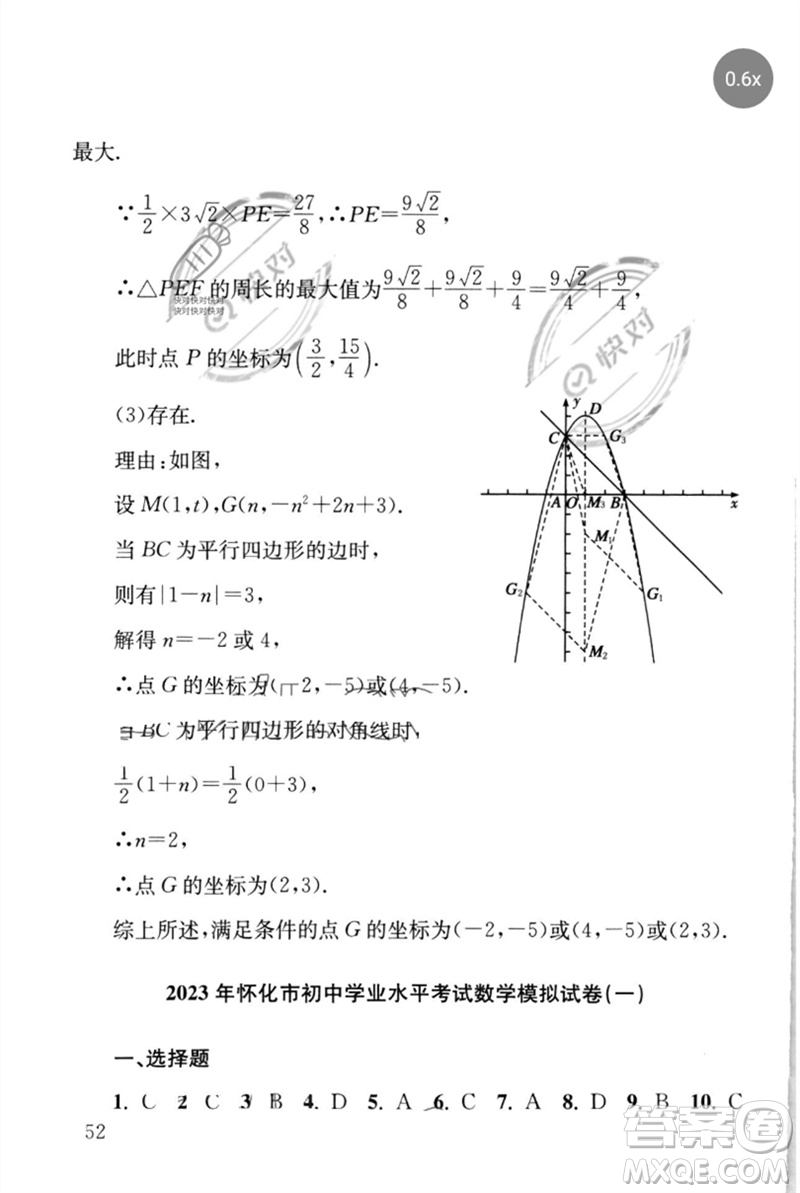 0.6x
最大.
∵1/2×3√2×PE=27/8,∴PE=9√2/8,
∴△PEF的周长的最大值为9√2/8+9√2/8+9/4=9√2/4+9/4,
快对快对快对
快对快对快对
快对
快对
此时点P的坐标为(3/2,15/4).
(3)存在.
理由:如图,
设M(1,t),G(n,-n²+2n+3).
当BC为平行四边形的边时,
则有|1-n|=3,
解得n=-2或4,
∴点G的坐标为(-2,-5)或(4,-5).
BC为平行四边形的对角线时,
1/2(1+n)=1/2(0+3),
∴n=2,
∴点G的坐标为(2,3).
y
D
C
G₃
A
O
M₃
B
x
M₁
G₂
G₁
M₂
综上所述,满足条件的点G的坐标为(-2,-5)或(4,-5)或(2,3).
2023年怀化市初中学业水平考试数学模拟试卷(一)
一、选择题
1. C 2 C 3 B 4. D 5. A 6. C 7. A 8. D 9. B 10. C
52
答案圈
MXQE.COM